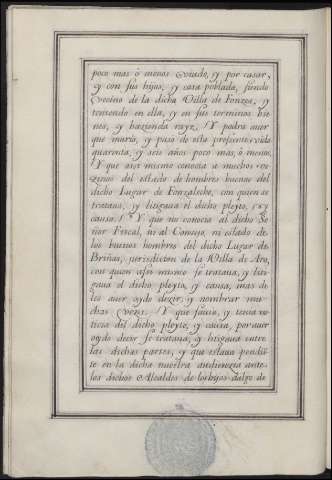 poco mas ò menos viudo, y por casar,
y con sus hijos, y casa poblada, siendo
vecino de la dicha Villa de Fonzea, y
teniendo en ella, y en sus terminos bie
nes, y hazienda rayz. Y podra auer
que murio, y paso de esta presente vida
quarenta, y seis años poco mas, ò menos.
Y que asi mismo conocia a muchos ve
zinos del estado de hombres buenos del
dicho Lugar de Fonzaleche, con quien se
trataua, y litigaua el dicho pleyto, y
causa. Y que no conocia al dicho Se
ñor Fiscal, ni al Concejo, ni estado de
los buenos hombres del dicho Lugar de
Briñas, jurisdicion de la Villa de Aro,
con quien asi mismo se trataua, y liti
gaua el dicho pleyto, y causa, mas de
los auer oydo dezir, y nombrar mu
chas vezes. Y que sauia, y tenia no
ticia del dicho pleyto, y causa, por auer
oydo decir se trataua, y litigaua entre
las dichas partes, y que estaua pendiē
te en la dicha nuestra audiencia ante
los dichos Alcaldes de los hijos dalgo de